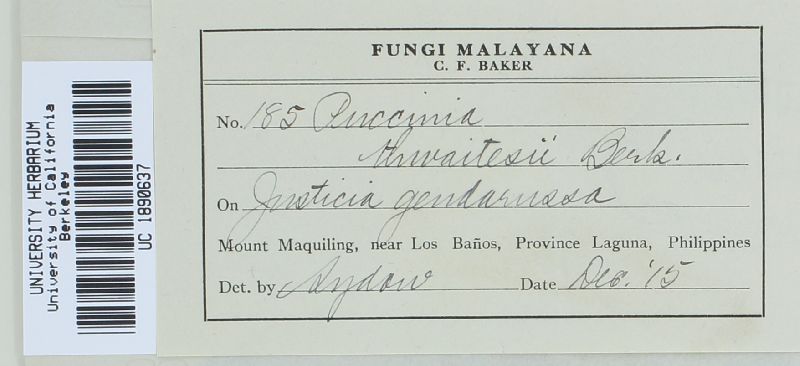 FUNGI MALAYANA
C. F. BAKER
No. 185 Puccinia
thwaitesii Berk.
On Justicia gendarussa
Mount Maquiling, near Los Baños, Province Laguna, Philippines
Det. by Sydow Date Dec. '15
UNIVERSITY HERBARIUM
University of California
Berkeley
UC 1890637